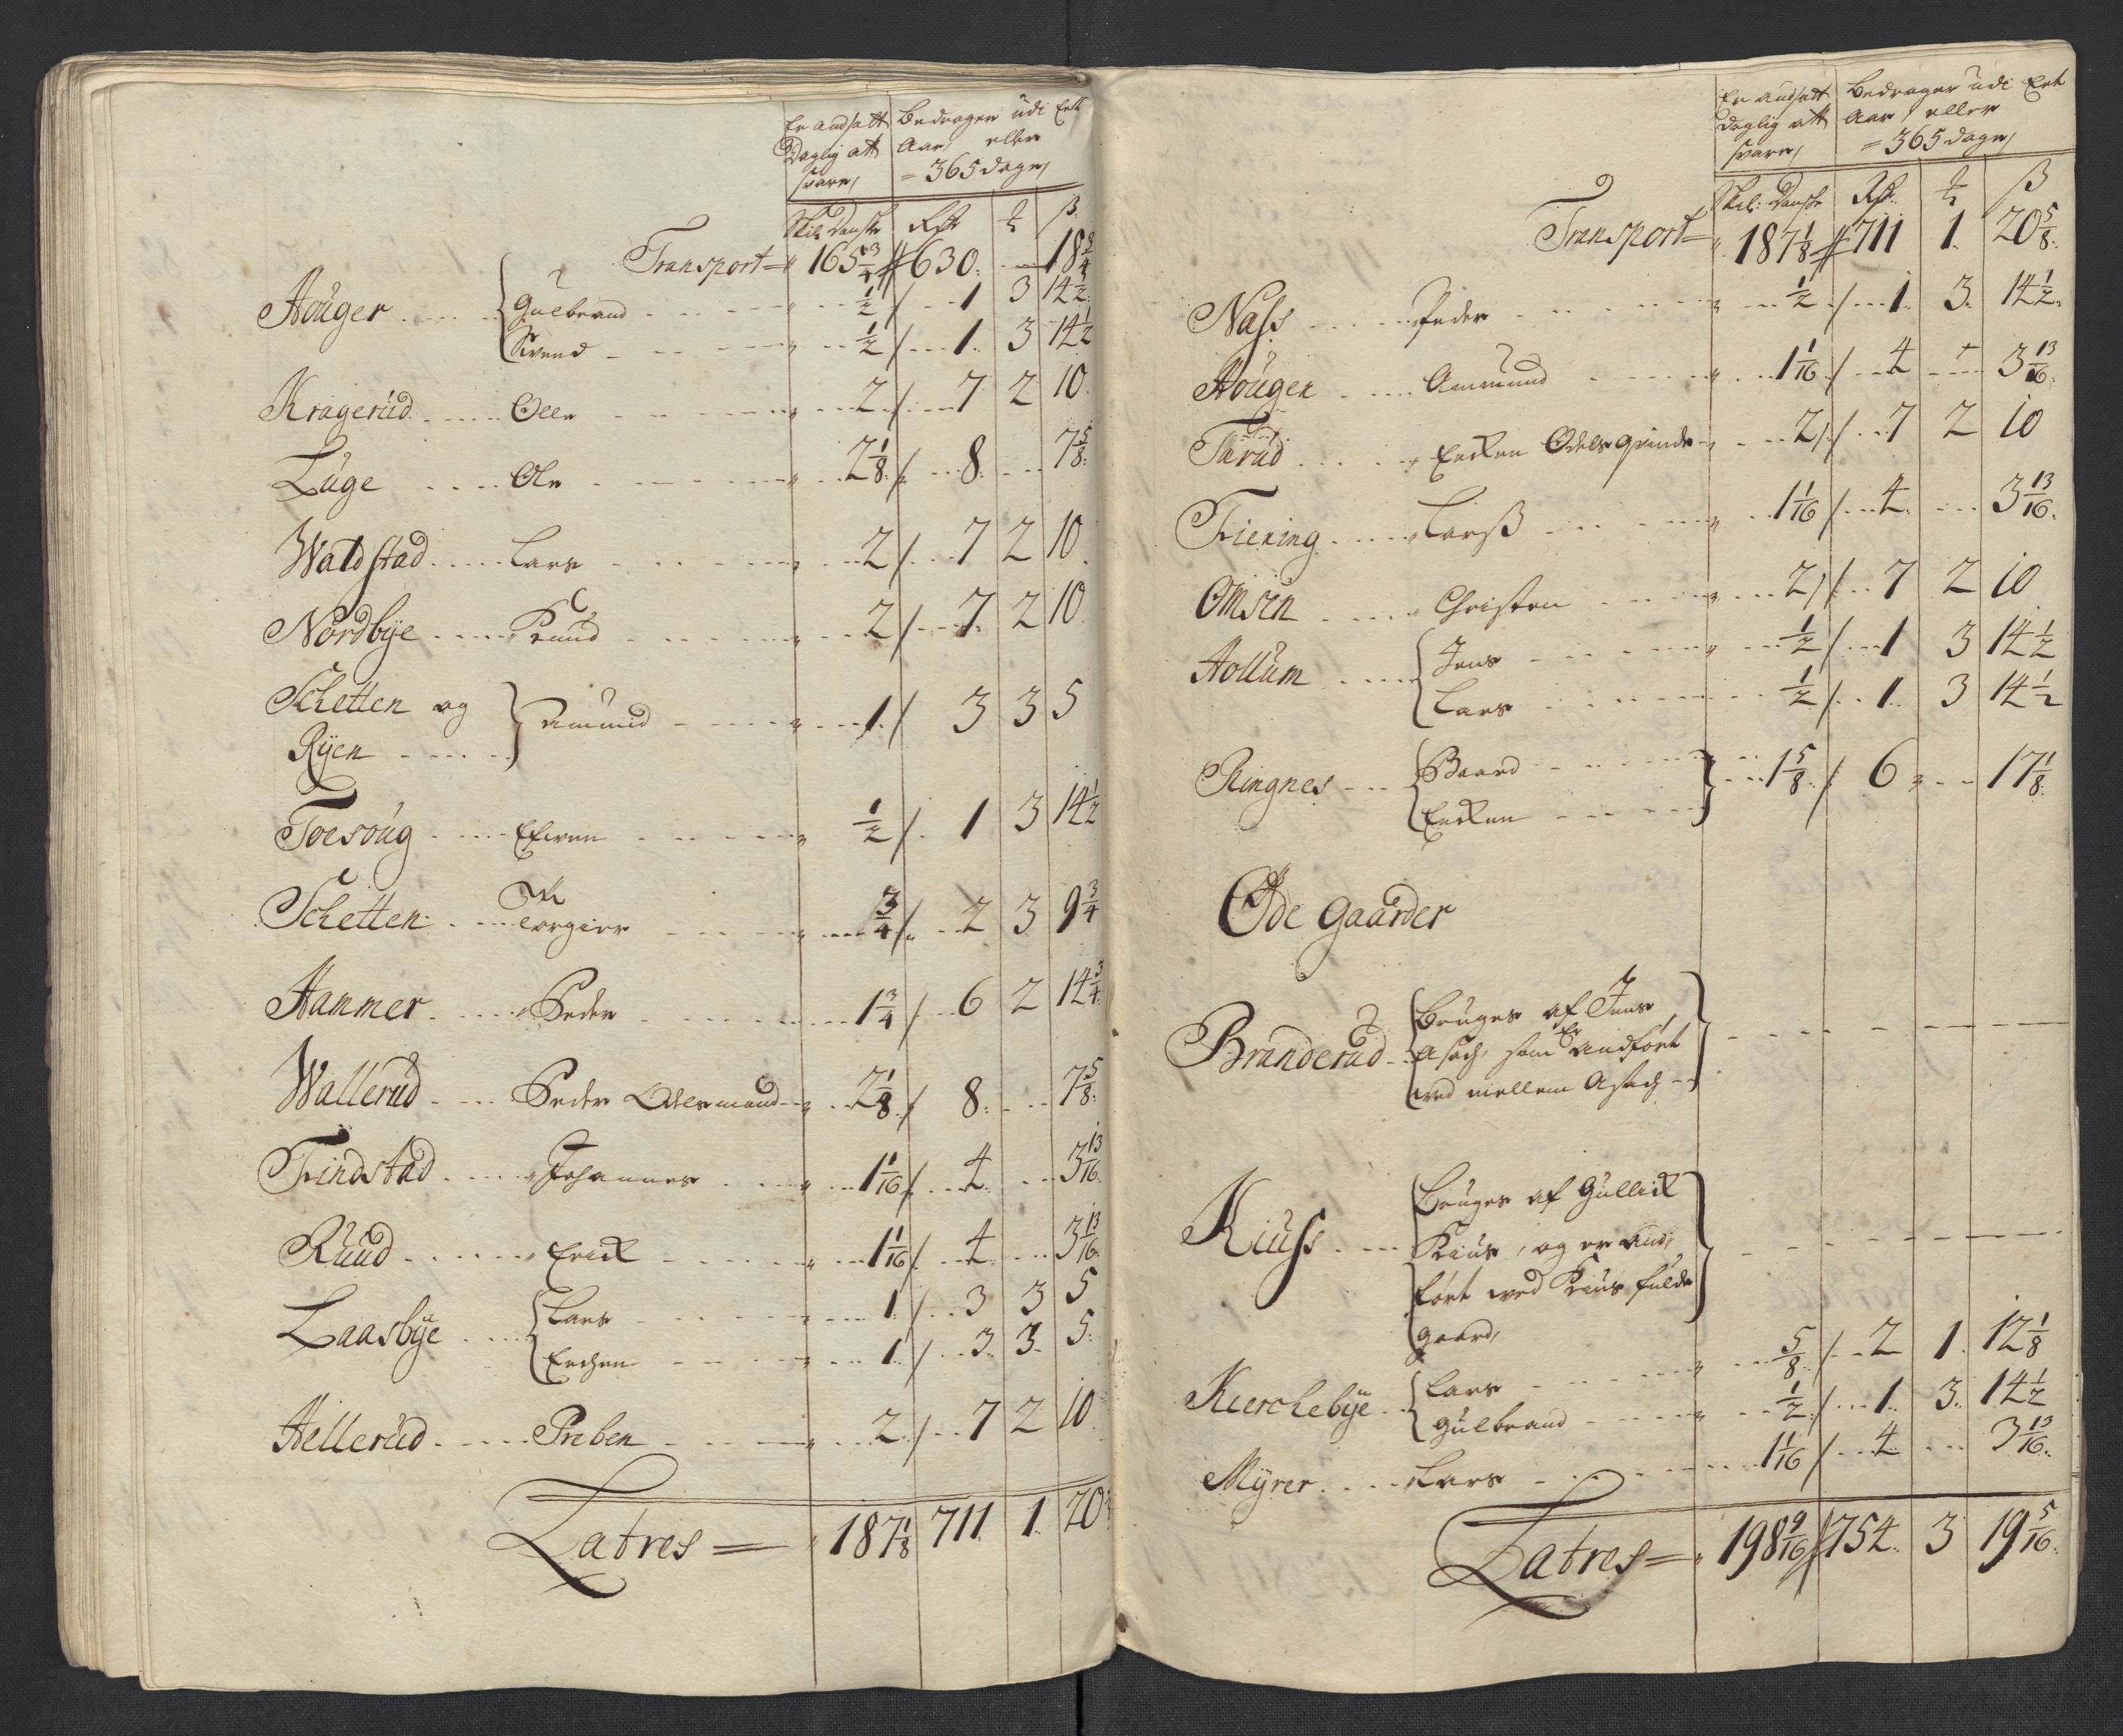 Er andsatt Daglig att svare/
Bedrager udi Ett Aar/ eller = 365 dage/
Skil: Danske Rdr ß
Transport = 165 3/4 630. 18 3/4
Houger Gulbrand 1/2 1 3 14 1/2
Svend 1/2 1 3 14 1/2
Kragerud Olle 2 7 2 10
Luge Ole 2 1/8 8 7 5/8
Waldstad Lars 2 7 2 10
Nordbye Knud 2 7 2 10
Schetten og
Ryen Amund 1 3 3 5
Toesoug Efwen 1/2 1 3 14 1/2
Schetten Torgier 3/4 2 3 9 3/4
Hammer Peder 1 3/4 6 2 14 3/4
Wallerud Peder Odelsmand 2 1/8 8 7 5/8
Findstad Johannes 1 1/16 4 3 13/16
Ruud Erick 1 1/16 4 3 13/16
Laasbye Lars 1 3 3 5
Erchen 1 3 3 5
Hellerud Preben 2 7 2 10
Latres = 187 1/8 711 1 20
Er andsatt Daglig att svare/
Bedrager udi Ett Aar/ eller = 365 dage/
Skil: Danske Rdr ß
Transport = 187 1/8 711 1 20 5/8
Nass Peder 1/2 1 3 14 1/2
Houger Ammund 1 1/16 4 3 13/16
Thrud Encken Odels qvinde 2 7 2 10
Fiering Larß 1 1/16 4 3 13/16
Omsen Christen 2 7 2 10
Hollum Jens 1/2 1 3 14 1/2
Lars 1/2 1 3 14 1/2
Ringnes Baard 1 5/8 6 17 1/8
Encken
Øde Gaarder
Branderud Bruges af Jens
Asach, som Er andført
ved mellem Asach
Kiuss Bruges af Gullick
Kius, og er and/
ført ved Kius fulde
gaard/
Kierchebye Lars 5/8 2 1 12 1/8
Gulbrand 1/2 1 3 14 1/2
Myrer Lars 1 1/16 4 3 13/16
Latres = 198 9/16 754 3 19 5/16